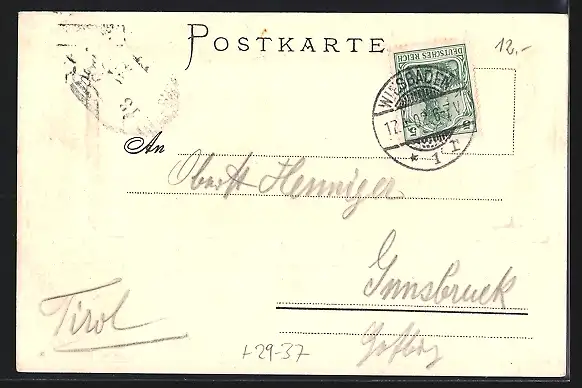 POSTKARTE
12.-
DEUTSCHES REICH
5 5
WIESBADEN
17.
* 1 T
An
Oberst Henniger
Innsbruck
Tirol
Hofburg
+29-37